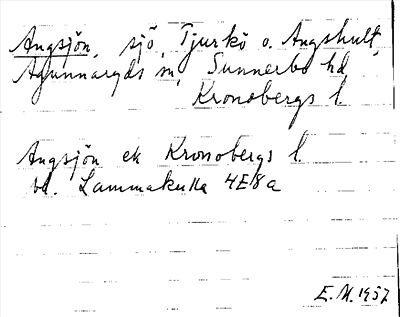 Angsjön, sjö, Tjurkö o. Angshult,
Agunnaryds sn, Sunnerbo hd,
Kronobergs l.
Angsjön ek Kronobergs l.
bd. Lammakulla 4E8a
E. M. 1957